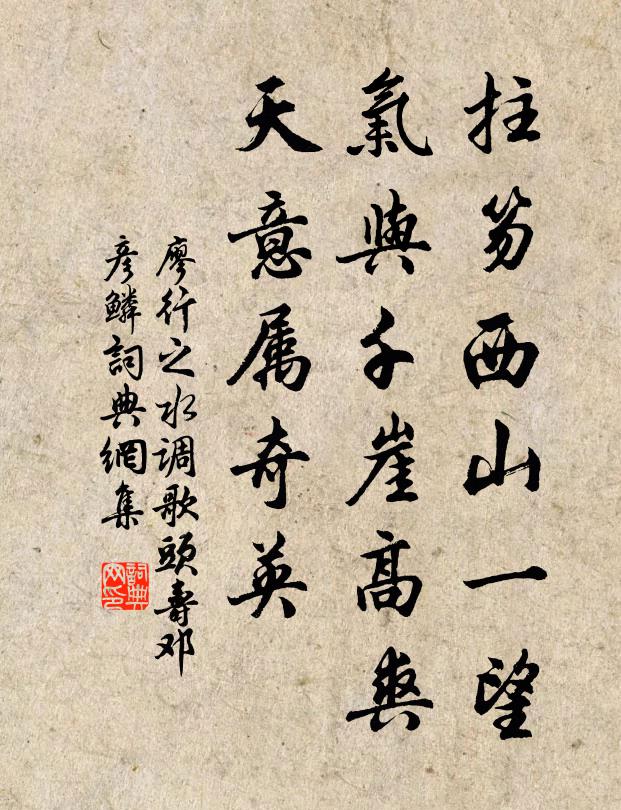 拄笏西山一望
氣與千崖高爽
天意属奇英
廖行之水调歌頭壽邓
彦鱗詞典網集
詞典网印